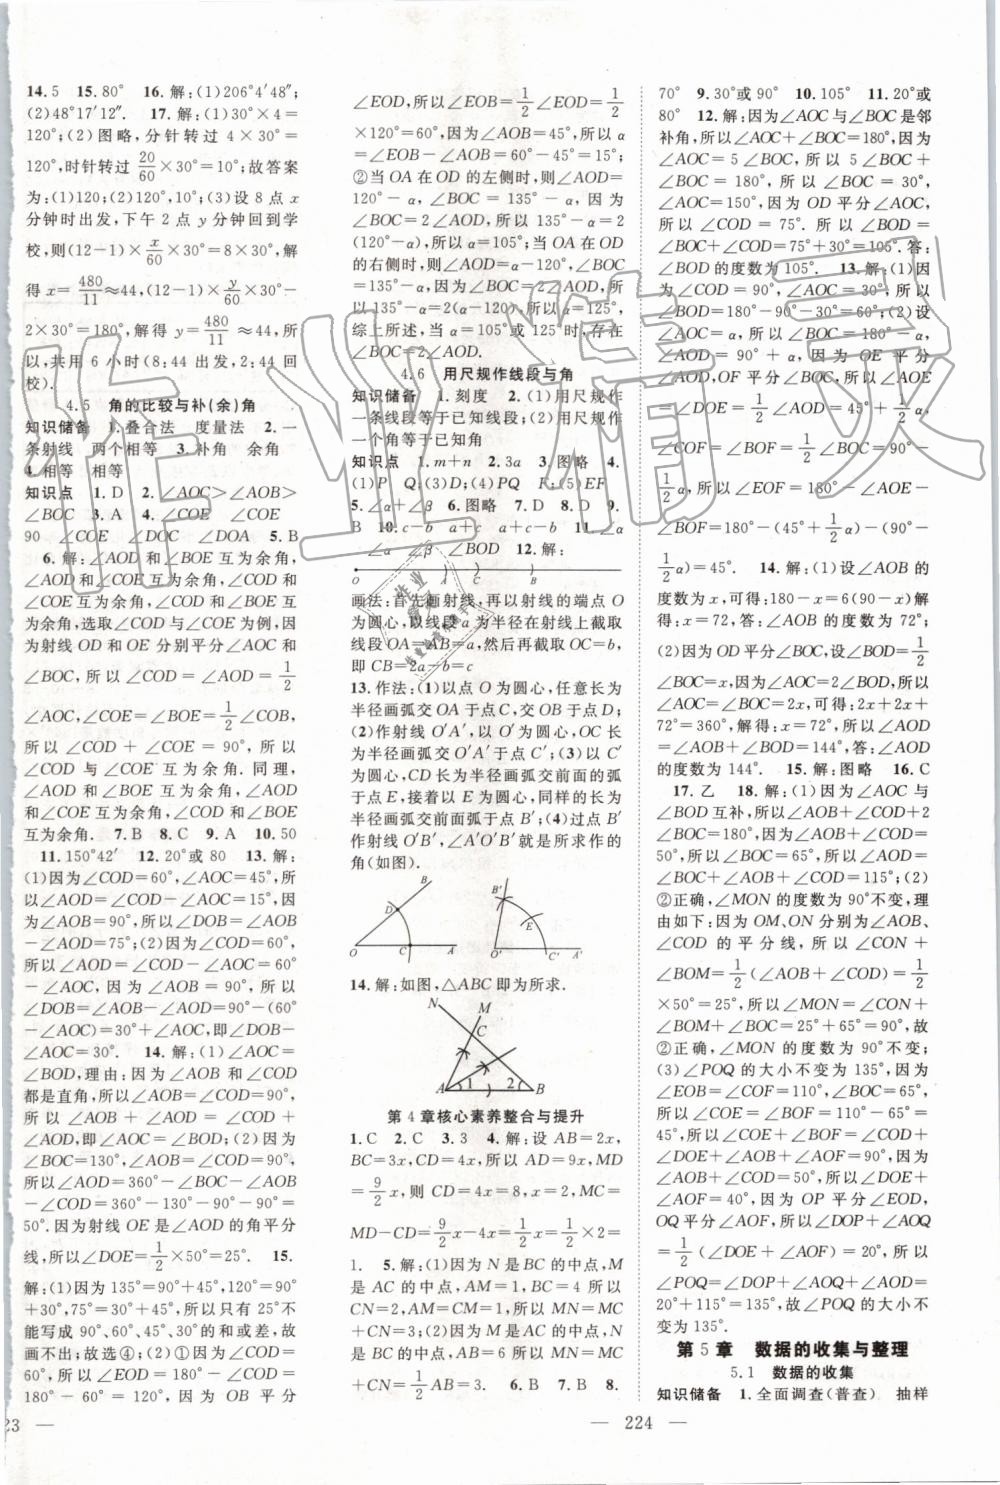 14.5　15.80°　16.解:(1)206°4′48″;
(2)48°17′12″.　17.解:(1)30°×4=
120°;(2)图略,分针转过 4×30°=
120°,时针转过20/60×30°=10°;故答案
为:(1)120°;(2)120°,10°;(3)设 8 点 x
分钟时出发,下午 2 点 y 分钟回到学
校,则(12-1)×x/60×30°=8×30°,解
得 x=480/11≈44,(12-1)×y/60×30°-
2×30°=180°,解得 y=480/11≈44,所
以,共用 6 小时(8:44 出发,2:44 回
校).
4.5　角的比较与补(余)角
知识储备　1.叠合法　度量法　2.一
条射线　两个相等　3.补角　余角
4.相等　相等
知识点　1.D　2.∠AOC>∠AOB>
∠BOC　3.A　4.∠COE　∠COE
90　∠COE　∠DOC　∠DOA　5.B
6.解:∠AOD 和∠BOE 互为余角,
∠AOD 和∠COE 互为余角,∠COD
和∠COE 互为余角,∠COD 和∠BOE
互为余角,选取∠COD 与∠COE 为例,因
为射线 OD 和 OE 分别平分∠AOC
和∠BOC,所以∠COD=∠AOD=1/2
∠AOC,∠COE=∠BOE=1/2∠COB,
所以∠COD+∠COE=90°,所以
∠COD 与∠COE 互为余角.同理,
∠AOD 和∠COE 互为余角,∠AOD
和∠COE 互为余角,∠COD 和∠BOE
互为余角.　7.B　8.C　9.A　10.50
11.150°42′　12.20°或 80　13.解:
(1)因为∠COD=60°,∠AOC=45°,所
以∠AOD=∠COD-∠AOC=15°,因
为∠AOB=90°,所以∠BOD=∠AOB
-∠AOD=75°;(2)因为∠COD=60°,
所以∠AOD=∠COD-∠AOC=60°
-∠AOC.因为∠AOB=90°,所以
∠DOB=∠AOB-∠AOD=90°-(60°
-∠AOC)=30°+∠AOC,即∠DOB-
∠AOC=30°.　14.解:(1)∠AOC=
∠BOD,理由:因为∠AOB 和∠COD
都是直角,所以∠AOB=∠COD=
90°,所以∠AOB+∠AOD=∠COD+
∠AOD,即∠AOC=∠BOD;(2)因为
∠BOC=130°,∠AOB=∠COD=90°,
所以∠AOD=360°-∠BOC-∠AOB
-∠COD=360°-130°-90°-90°=
50°.因为射线 OE 是∠AOD 的角平分
线,所以∠DOE=1/2×50°=25°.　15.
解:(1)因为 135°=90°+45°,120°=90°
+30°,75°=30°+45°,所以只有 25°不
能写成 90°、60°、45°、30°的和或差,故
画不出;故选④;(2)①因为∠COD=
60°,所以∠EOD=180°-∠COD=
180°-60°=120°,因为 OB 平分
∠EOD,所以∠EOB=1/2∠EOD=1/2
×120°=60°,因为∠AOB=45°,所以 α
=∠EOB-∠AOB=60°-45°=15°;
②当 OA 在 OD 的左侧时,则∠AOD=
120°-α,∠BOC=135°-α.因为
∠BOC=2∠AOD,所以 135°-α=2
(120°-α),所以 α=105°;当 OA 在 OD
的右侧时,则∠AOD=α-120°,∠BOC
=135°-α,因为∠BOC=2∠AOD,所
以 135°-α=2(α-120°),所以 α=125°,
综上所述,当 α=105°或 125°时,存在
∠BOC=2∠AOD.
4.6　用尺规作线段与角
知识储备　1.刻度　2.(1)用尺规作
一条线段等于已知线段;(2)用尺规作
一个角等于已知角
知识点　1.m+n　2.3a　3.图略　4.
(1)P　Q;(3)D;(4)PQ　F;(5)EF
5.∠α+∠β　6.图略　7.D　8.D　9.
B　10.c-b　a+c　a+c-b　11.∠α
∠α　∠β　∠BOD　12.解:
O　A　C　B
画法:首先画射线,再以射线的端点 O
为圆心,以线段 a 为半径在射线上截取
线段 OA=AB=a,然后再截取 OC=b,
即 CB=2a-b=c
13.作法:(1)以点 O 为圆心,任意长为
半径画弧交 OA 于点 C,交 OB 于点 D;
(2)作射线 O′A′,以 O′为圆心,OC 长
为半径画弧交 O′A′于点 C′;(3)以 C′
为圆心,CD 长为半径画弧交前面的弧
于点 E,接着以 E 为圆心,同样的长为
半径画弧交前面弧于点 B′;(4)过点 B′
作射线 O′B′,∠A′O′B′就是所求作的
角(如图).
B　D　O　C　A　B′　E　O′　C′　A′
14.解:如图,△ABC 即为所求.
N　M　C　A　1　2　B
第 4 章核心素养整合与提升
1.C　2.C　3.3　4.解:设 AB=2x,
BC=3x,CD=4x,所以 AD=9x,MD
=9/2x,则 CD=4x=8,x=2,MC=
MD-CD=9/2x-4x=1/2x=1/2×2=
1.　5.解:(1)因为 N 是 BC 的中点,M
是 AC 的中点,AM=1,BC=4 所以
CN=2,AM=CM=1,所以 MN=MC
+CN=3;(2)因为 M 是 AC 的中点,N
是 BC 的中点,AB=6,所以 MN=MC
+CN=1/2AB=3　6.B　7.B　8.
70°　9.30°或 90°　10.105°　11.20°或
80°　12.解:因为∠AOC 与∠BOC 是邻
补角,所以∠AOC+∠BOC=180°,因为
∠AOC=5∠BOC,所以 5∠BOC+
∠BOC=180°,所以∠BOC=30°,
∠AOC=150°,因为 OD 平分∠AOC,
所以∠COD=75°.所以∠BOD=
∠BOC+∠COD=75°+30°=105°.答:
∠BOD 的度数为 105°.　13.解:(1)因
为∠COD=90°,∠AOC=30°,所以
∠BOD=180°-90°-30°=60°;(2)设
∠AOC=α,所以∠BOC=180°-α,
∠AOD=90°+α.因为 OE 平分
∠AOD,OF 平分∠BOC,所以∠AOE
=∠DOE=1/2∠AOD=45°+1/2α,
∠COF=∠BOF=1/2∠BOC=90°-
1/2α,所以∠EOF=180°-∠AOE-
∠BOF=180°-(45°+1/2α)-(90°-
1/2α)=45°.　14.解:(1)设∠AOB 的
度数为 x,可得:180-x=6(90-x)解
得:x=72,答:∠AOB 的度数为 72°;
(2)因为 OD 平分∠BOC,所以1/2
∠BOC=x,因为∠AOC=2∠BOD,所
以∠AOC=∠BOC=2x,可得:2x+2x+
72°=360°,解得:x=72°,所以∠AOD
=∠AOB+∠BOD=144°,答:∠AOD
的度数为 144°.　15.解:图略　16.C
17.乙　18.解:(1)因为∠AOC 与
∠BOD 互补,所以∠AOB+∠COD+2
∠BOC=180°,因为∠AOB+∠COD=
50°,所以∠BOC=65°,所以∠AOD=
∠BOC+∠AOB+∠COD=115°;(2)
②正确,∠MON 的度数为 90°不变,理
由如下:因为 OM、ON 分别为∠AOB、
∠COD 的平分线,所以∠CON+
∠BOM=1/2(∠AOB+∠COD)=1/2
×50°=25°,所以∠MON=∠CON+
∠BOM+∠BOC=25°+65°=90°,故
②正确,∠MON 的度数为 90°不变;
(3)∠POQ 的大小为 135°不变,因为
∠EOB=∠COF=110°,∠BOC=65°,
所以∠COE+∠BOF=110°,所以
∠EOF=∠COE+∠BOF+∠BOC=
∠DOE+∠AOF+∠AOD,所以∠DOE+
∠AOF=40°.因为 OP 平分∠EOD,
OQ 平分∠AOF,所以∠DOP+∠AOQ
=1/2(∠DOE+∠AOF)=20°,所以
∠POQ=∠DOP+∠AOQ+∠AOD=
20°+115°=135°,故∠POQ 的大小不
变为 135°.
第 5 章　数据的收集与整理
5.1　数据的收集
知识储备　1.全面调查(普查)　抽样
23 —
— 224 —
作业精灵